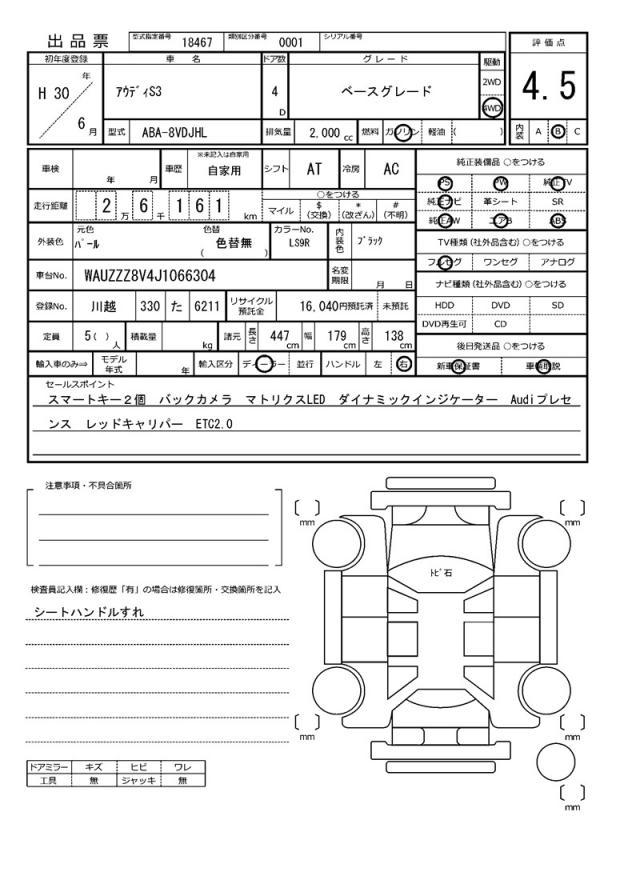 出品票 型式指定番号 18467 類別区分番号 0001 シリアル番号
初年度登録 車名 ドア数 グレード 駆動 評価点
H 30 年 6 月 アウディS3 4 D ベースグレード 2WD 4WD 4.5
型式 ABA-8VDJHL 排気量 2,000 cc 燃料 ガソリン 軽油 ( ) 内装 A B C
車検 年 月 車歴 ※未記入は自家用 自家用 シフト AT 冷房 AC 純正装備品 ○をつける
PS PW 純正TV
走行距離 2 万 6 千 1 6 1 km ○をつける 純正ナビ 革シート SR
マイル $ (交換) * (改ざん) # (不明) 純正AW エアB ABS
外装色 元色 パール 色替 色替無 ( ) カラーNo. LS9R 内装色 ブラック TV種類 (社外品含む) ○をつける
フルセグ ワンセグ アナログ
車台No. WAUZZZ8V4J1066304 名変期限 月 日 ナビ種類 (社外品含む) ○をつける
登録No. 川越 330 た 6211 リサイクル預託金 16,040円預託済 未預託 HDD DVD SD
DVD再生可 CD
定員 5( ) 人 積載量 kg 諸元 長さ 447 cm 幅 179 cm 高さ 138 cm 後日発送品 ○をつける
輸入車のみ⇒ モデル年式 年 輸入区分 ディーラー 並行 ハンドル 左 右 新車保証書 車輌取説
セールスポイント
スマートキー２個 バックカメラ マトリクスLED ダイナミックインジケーター Audiプレセ
ンス レッドキャリパー ETC2.0
注意事項・不具合箇所
mm mm
トビ石
検査員記入欄：修復歴「有」の場合は修復箇所・交換箇所を記入
シートハンドルすれ
mm mm
ドアミラー キズ ヒビ ワレ
工具 無 ジャッキ 無
mm